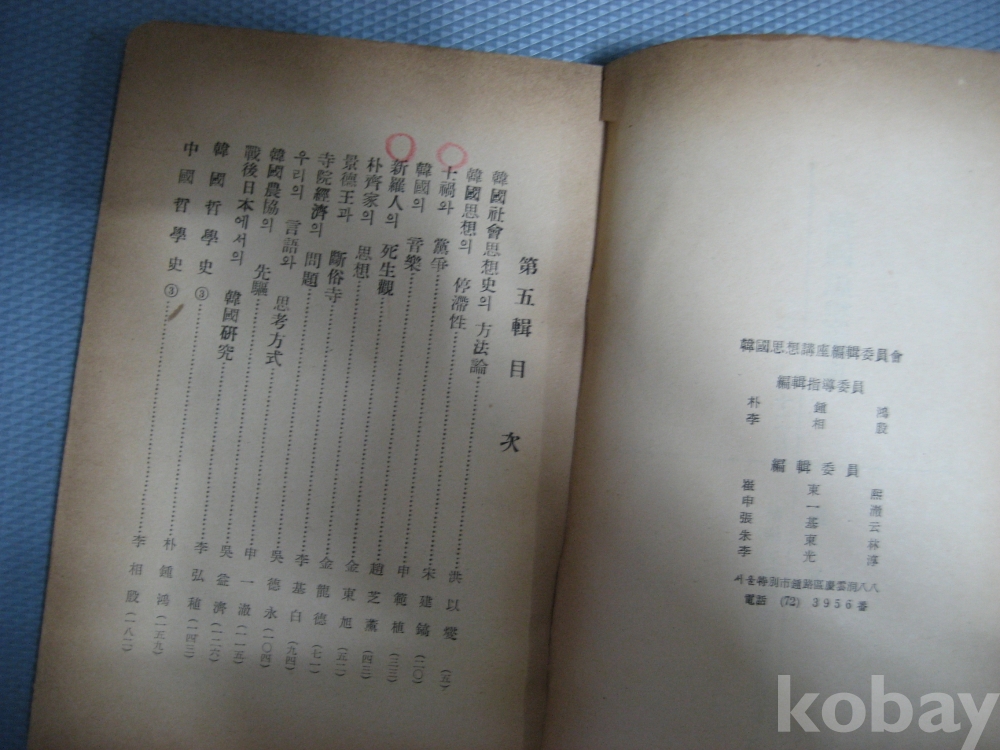 第五輯 目次
韓國社會思想史의 方法論 洪以燮 (五)
韓國思想의 停滯性 宋建鎬 (二〇)
士禍와 黨爭 申範植 (三三)
韓國의 音樂 趙芝薰 (四三)
新羅人의 死生觀 金東旭 (五二)
朴齊家의 思想 金龍德 (七一)
景德王과 斷俗寺 李基白 (九四)
寺院經濟의 問題 吳德永 (一〇四)
우리의 言語와 思考方式 申一澈 (一一五)
韓國農協의 先驅 吳益濟 (一二六)
戰後日本에서의 韓國硏究 李弘稙 (一四三)
韓國哲學史③ 朴鍾鴻 (一五九)
中國哲學史③ 李相殷 (一八二)
韓國思想講座編輯委員會
編輯指導委員
朴鍾鴻
李相殷
編輯委員
崔東熙
申一澈
張基云
朱東林
李光淳
서울特別市鍾路區慶雲洞八八
電話 (72) 3956番
kobay